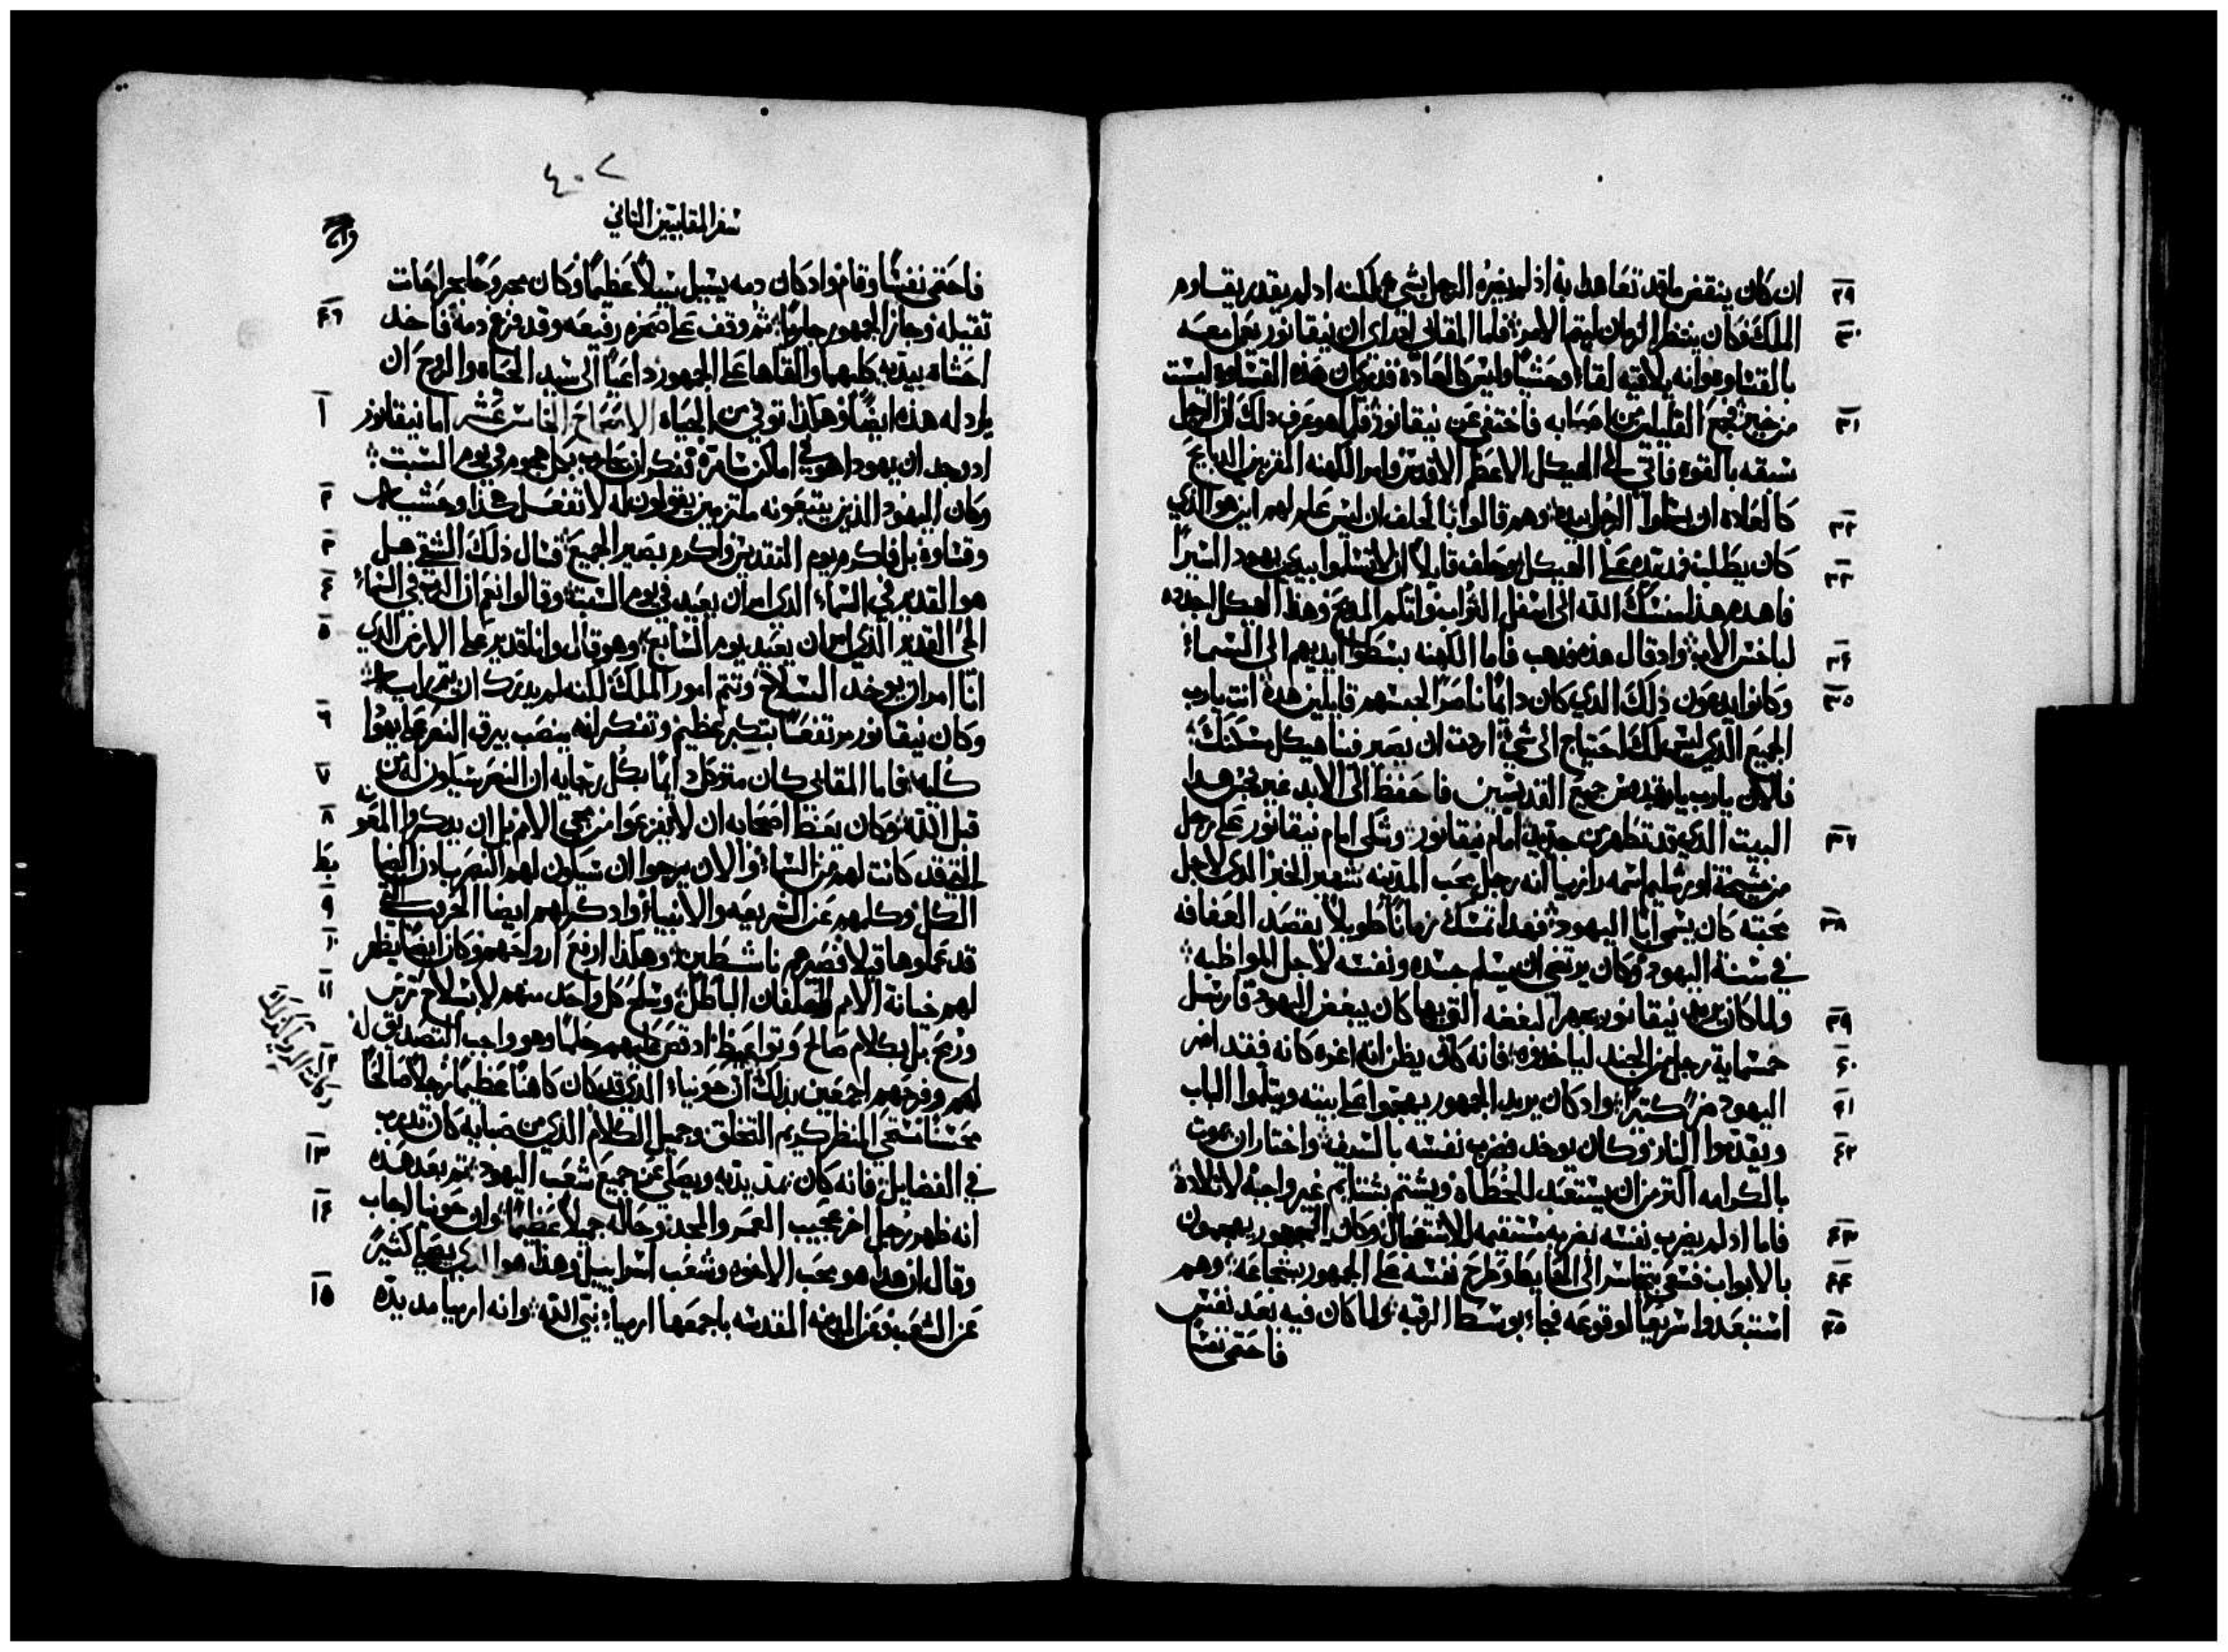 ٢٩ ان كان ينقض ماقد تعاهد به اذ لم يضره الرجل بشي لكنه اذ لم يقدر يقاوم
٣٠ الملك فكان ينتظر الزمان ليتم الامر فاما المقابي اذ راي ان نيقانور يعمل معه
بالقساوه وانه يلاقيه لقاءً وحشيًا وليس كالعادة فذكر ان هذه القساوه ليست
٣١ من خير فجمع القليلين من اصحابه فاختفي عن نيقانور فلما هو عرف ذلك ان الرجل
سبقه بالقوه فاتي الي الهيكل الاعظم الاقدس وامر الكهنه المقربين الدبايح
٣٢ كالعاده ان يسلموا الرجل بيده وهم قالوا بالحلف ان ليس علم لهم اين هو الذي
٣٣ كان يطلب فمد يده علي الهيكل وحلف قايلاً ان لا تسلموا بيدي يهودا اسيرًا
فاهدم هذا مسكن الله الي اسفل التراب واثلم المذبح وهذا الهيكل اجدده
٣٤ لباخس الاب واذ قال هذه ذهب فاما الكهنه بسطوا ايديهم الي السماء
٣٥ وكانوا يدعون ذلك الذي كان دايمًا ناصرًا لجنسهم قايلين هذه انت يارب
الجميع الذي ليس لك احتياج الي شي اردت ان يصير فينا هيكل مسكنك
فالان يارب ياقدوس جميع القديسين فاحفظ الي الابد غير نجس هذا
٣٧ البيت الذي قد تطهر من جديد امام نيقانور وشكي امام نيقانور علي رجل
من مشيخة اورشليم اسمه رازيا انه رجل محب المدينه شهير الخبر الذي لاجل
٣٨ محبته كان يسمي ابًا اليهود فهذا تمسك زمانًا طويلاً بقصد العفافه
في سنة اليهود وكان يرتضي ان يسلم جسده ونفسه لاجل المواظبه
٣٩ ولما كان يريد نيقانور يجهر البغضه التي بها كان يبغض اليهود فارسل
٤٠ خمسماية رجل من الجند لياخذوه فانه كان يظن انه اغره كانه فقد اضر
٤١ اليهود ضرًا كثيرًا واذ كان يريد الجمهور يهجموا علي بيته ويثلموا الباب
٤٢ ويقدموا النار وكان يوخد فضرب نفسه بالسيف واختار ان يموت
بالكرامه اكثر من ان يستعبد للخطاه ويشتم بشتايم غير واجبة لاتلاده
٤٣ فاما اذ لم يضرب نفسه بضربه مستقيمه للاستعجال وكان الجمهور يهجمون
٤٤ بالابواب فسعي بتجاسر الي الحايط وطرح نفسه علي الجمهور بشجاعه وهم
٤٥ استبعدوا سريعًا لوقوعه فجاء بوسط الرقبه ولما كان فيه بعد نفس
فاحتمي نفسًا
٤٠٢
سفر المقابيين الثاني
فاحتمي نفسًا وقام واذ كان دمه يسيل سيلاً عظيمًا وكان مجروحًا بجراحات
٤٦ تقيله وجاز الجمهور جاريًا ثم وقف علي صخره رفيعه وقد فرغ دمه فاخد
احشاه بيديه كليهما والقاها علي الجمهور داعيًا الي سيد الحياه والروح ان
١ يرد له هذه ايضًا وهكذا توفي من الحياه الاصحاح الخامس عشر اما نيقانور
اد وجد ان يهودا هو في اماكن سامرة تفكر ان يحارب بكل هجوم في يوم السبت
٢ وكان اليهود الذين يتبعونه ملتزمين يقولون له لا تفعل هكذا وحشيًا
٣ وقساوة بل فاكرم يوم التقديس واكرم بصير الجميع فسال ذلك الشقي هل
٤ هو القدير في السماء الذي امر ان يعيد في يوم السبت وقالوا نعم ان الرب في السماء
٥ الحي القدير الذي امر ان يعيد يوم السابع وهو قال وانا قدير علي الارض الذي
انا امر ان يوخد السلاح وتتم امور الملك لكنه لم يدرك ان يتم رايه
٦ وكان نيقانور مرتفعًا بتكبر عظيم وتفكر انه ينصب بيرق النصر علي يهودا
٧ كليه فاما المقابي كان متوكل دايمًا بكل رجايه ان النصر سيكون له من
٨ قبل الله وكان يعظ اصحابه ان لا يفزعوا من مجي الامم بل ان يدكروا المعونه
التي قد كانت لهم من السماء والان يرجوا ان سيكون لهم النصر باذن الضابط
٩ الكل وكلمهم عن الشريعه والانبياء واد كرلهم ايضا الحرب التي
١٠ قد عملوها قبلاً فصيرهم ناشطين وهكذا ارفع ارواحهم وكان ايضًا يظهر
١١ لهم خيانة الامم وتخلفان الباطل وسلح كل واحد منهم لا بسلاح ترس
ورمح بل بكلام صالح وتواعيظ اد قص عليهم حلمًا وهو واجب التصديق له
١٢ لهم وفرحهم اجمعين بذلك ان حونيا الذي قد كان كاهنًا عظيمًا رجلاً صالحًا
محسنا مستحي المنظر كريم التخلق وجميل الكلام الذي من صباه كان تدرب
١٣ في الفضايل فانه كان يمد يديه ويصلي عن جميع شعب اليهود ثم بعد هذه
١٤ انه ظهر رجل اخر عجيب العمر والمجد وحاله جميلاً عظيمًا وان حونيا اجاب
وقال ان هذا هو محب الاخوه وشعب اسراييل وهذا هو الذي يصلي كثيرً
١٥ عن الشعب وعن المدينه المقدسه باجمعها ارميا نبي الله وانه ارميا مد يده